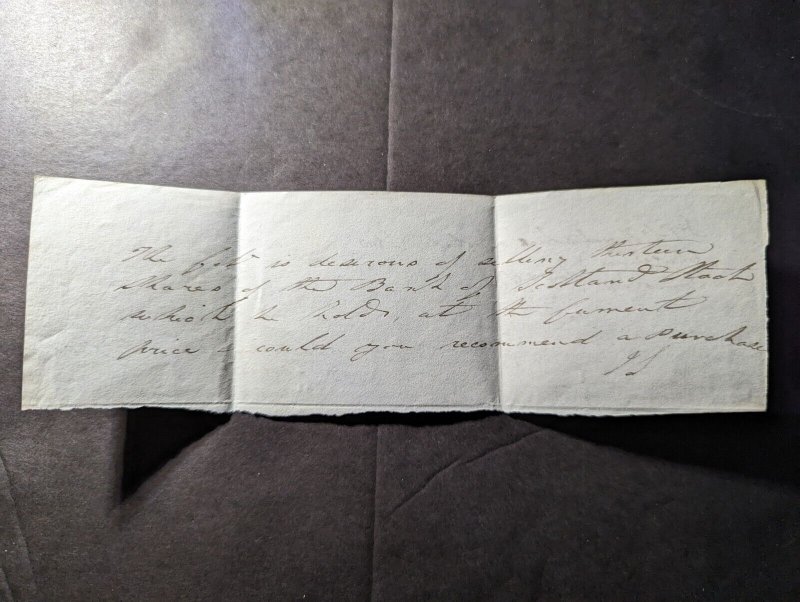 The is desirous of selling thirteen
Shares of the Bank of Scotland Stock
which he holds, at the
price & could you recommend a purchase
JS